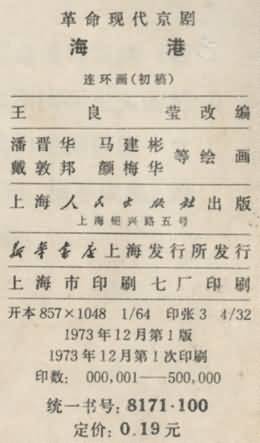 革命现代京剧
海港
连环画(初稿)
王良莹改编
潘晋华 马建彬
戴敦邦 颜梅华 等绘画
上海人民出版社出版
上海绍兴路五号
新华书店上海发行所发行
上海市印刷七厂印刷
开本857×1048 1/64 印张3 4/32
1973年12月第1版
1973年12月第1次印刷
印数:000,001——500,000
统一书号:8171·100
定价:0.19元